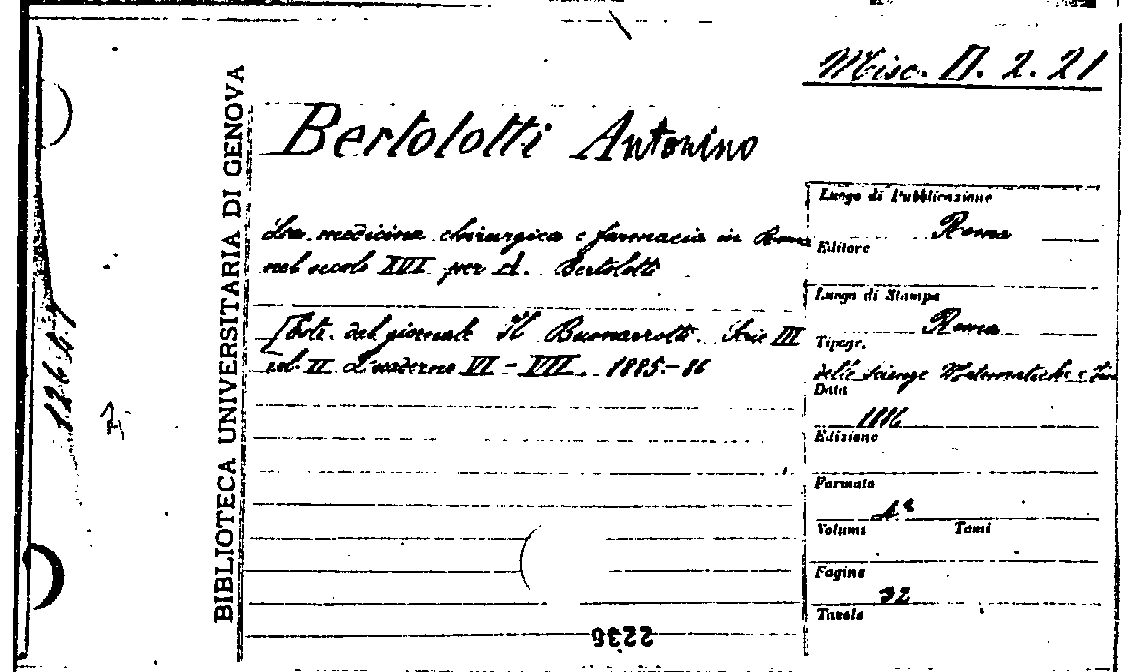 Misc. D. 2. 21
BIBLIOTECA UNIVERSITARIA DI GENOVA
Bertolotti Antonino
La medicina chirurgica e farmacia in Roma
nel secolo XVI per A. Bertolotti
[Estr. dal giornale Il Buonarroti. Serie III
vol. II Quaderno VI - VIII. 1885-86
Luogo di Pubblicazione
Roma
Editore
Luogo di Stampa
Roma
Tipogr.
delle scienze Matematiche e
Data
1886
Edizione
Formato
4°
Volumi Tomi
Pagine
32
Tavole
2236